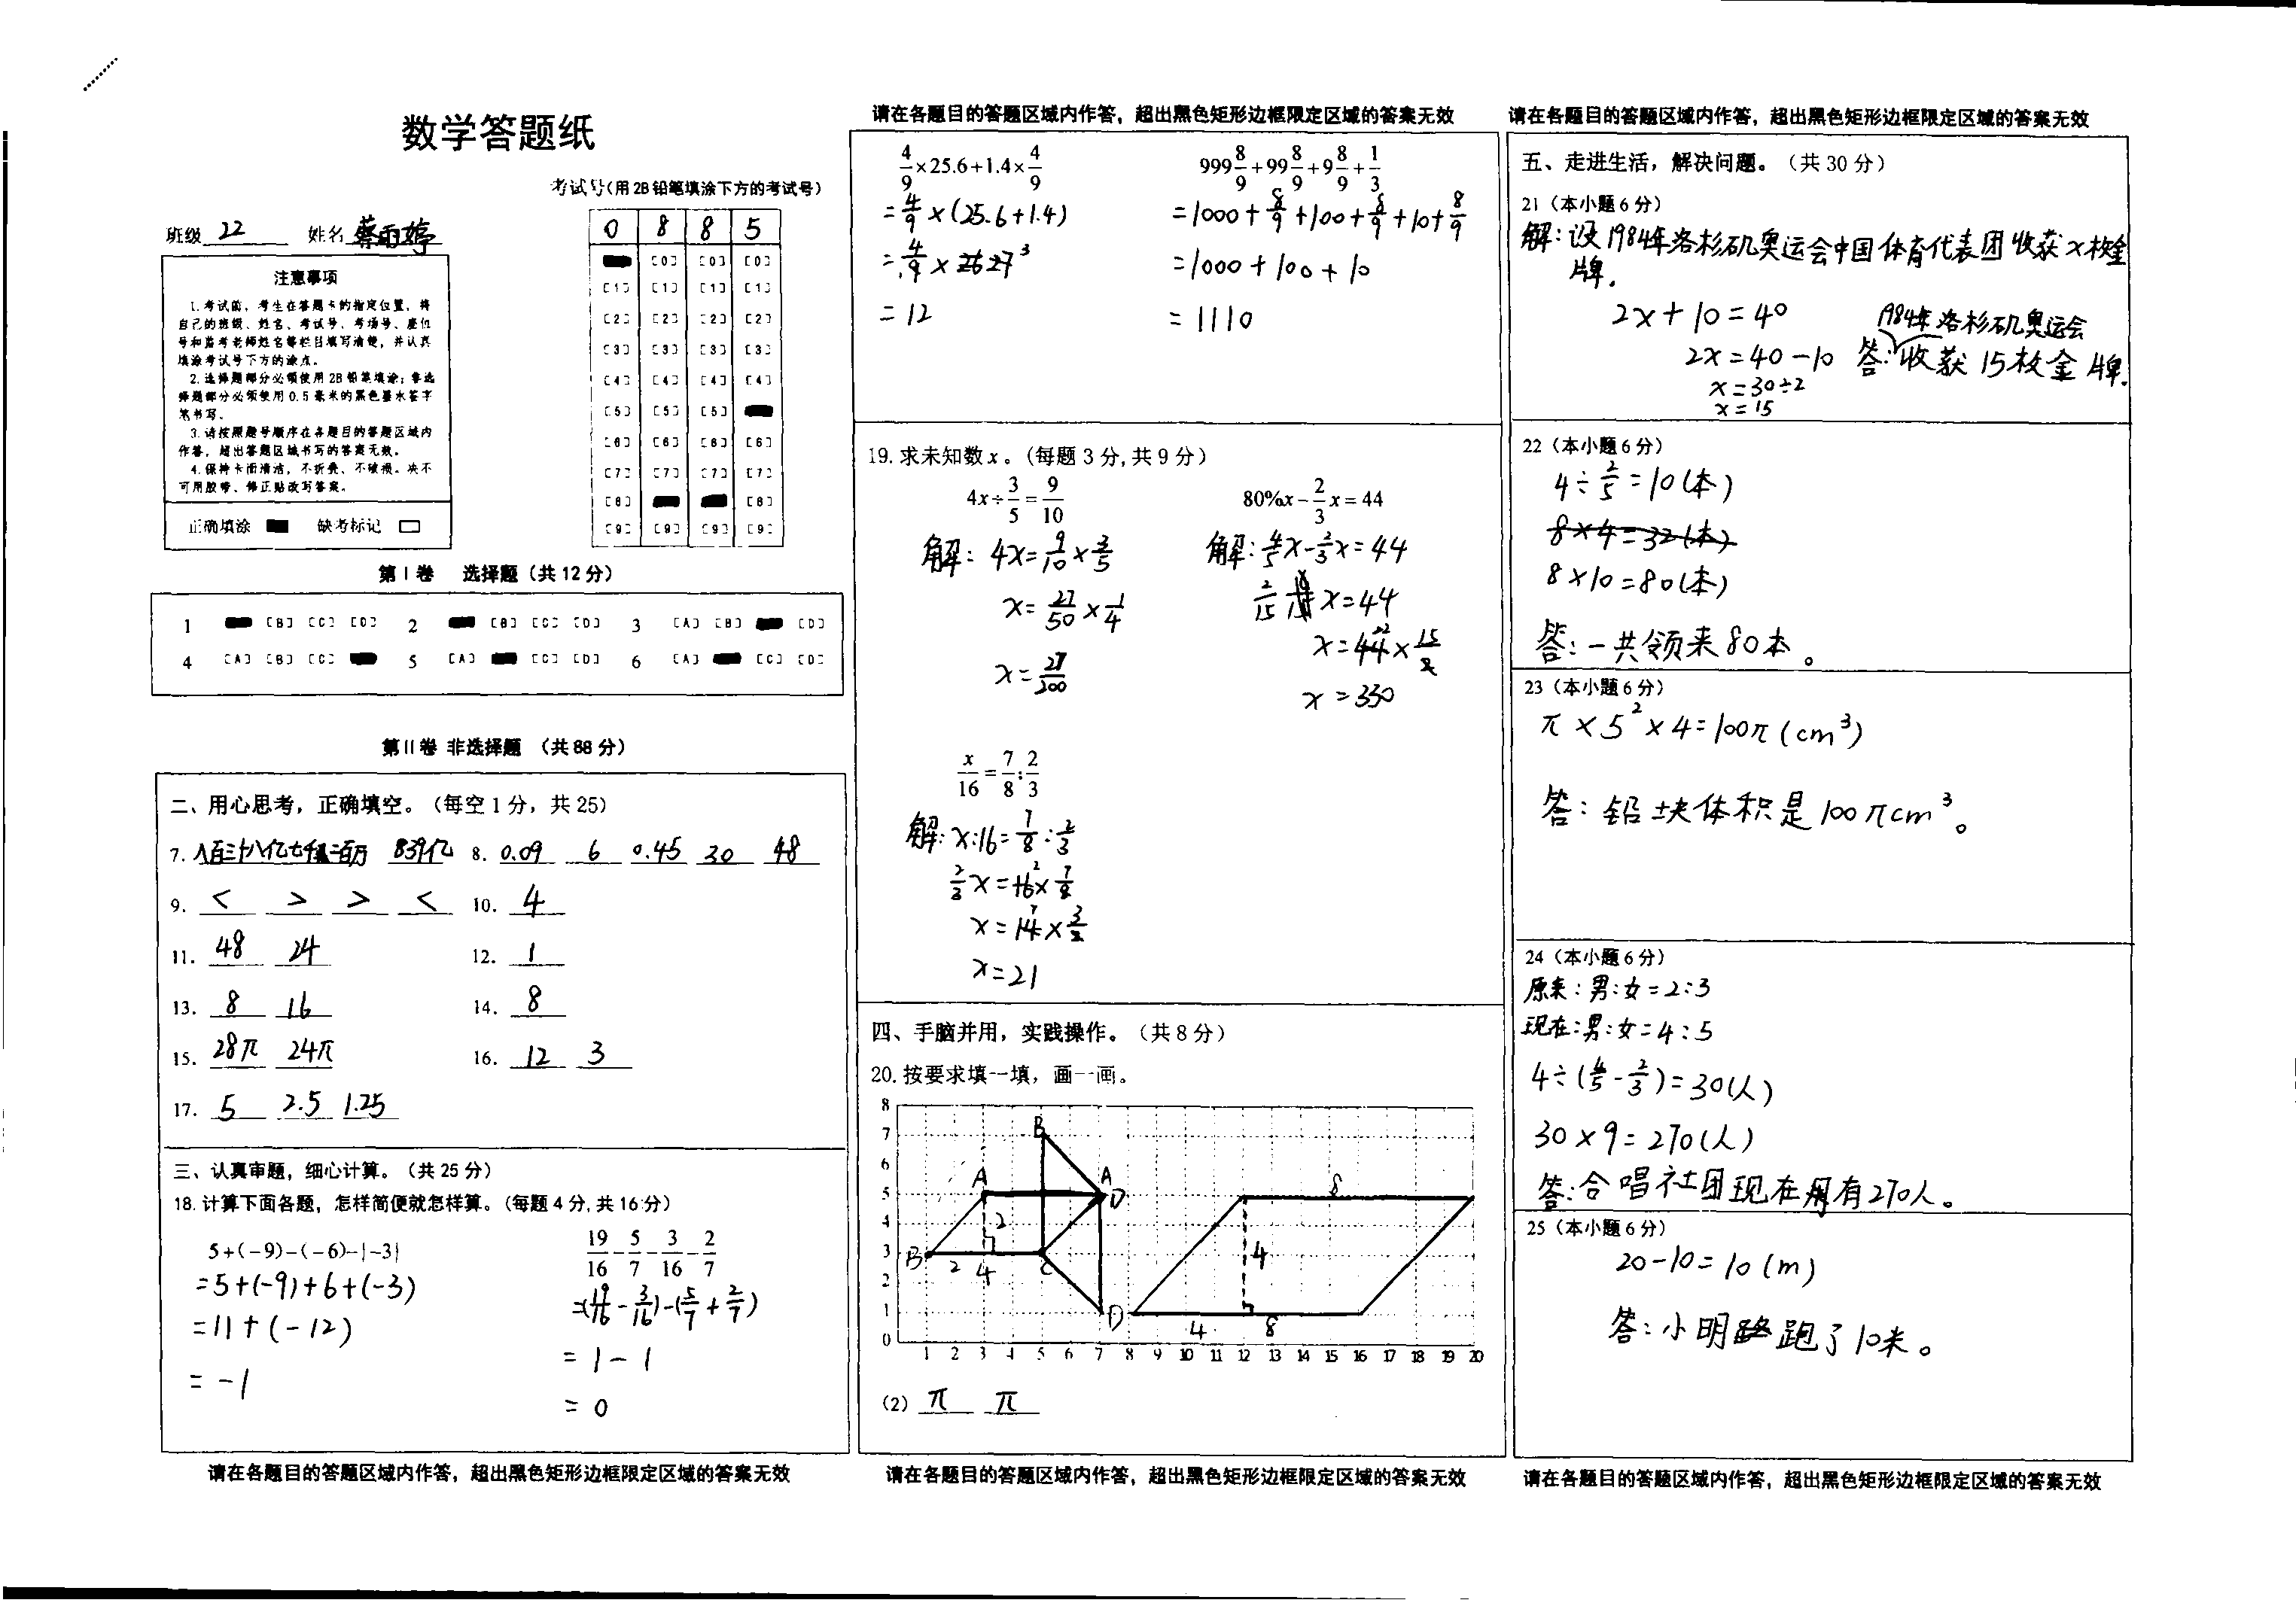 数学答题纸
考试号(用2B铅笔填涂下方的考试号)
班级 22 姓名 蔡雨婷
0 8 8 5
[0] [0] [0]
[1] [1] [1] [1]
[2] [2] [2] [2]
[3] [3] [3] [3]
[4] [4] [4] [4]
[5] [5] [5]
[6] [6] [6] [6]
[7] [7] [7] [7]
[8] [8]
[9] [9] [9] [9]
注意事项
1.考试前，考生在答题卡的指定位置，将
自己的班级、姓名、考试号、考场号、座位
号和监考老师姓名等栏目填写清楚，并认真
填涂考试号下方的涂点。
2.选择题部分必须使用2B铅笔填涂；非选
择题部分必须使用0.5毫米的黑色墨水签字
笔书写。
3.请按照题号顺序在各题目的答题区域内
作答，超出答题区域书写的答案无效。
4.保持卡面清洁，不折叠、不破损。决不
可用胶带、修正贴改写答案。
正确填涂 缺考标记
第Ⅰ卷 选择题（共12分）
1 [B] [C] [D] 2 [B] [C] [D] 3 [A] [B] [D]
4 [A] [B] [C] 5 [A] [C] [D] 6 [A] [C] [D]
第Ⅱ卷 非选择题 （共88分）
二、用心思考，正确填空。（每空1分，共25）
7. 八百三十八亿七千二百万 839亿 8. 0.09 6 0.45 30 48
9. < > > < 10. 4
11. 48 24 12. 1
13. 8 16 14. 8
15. 28π 24π 16. 12 3
17. 5 2.5 1.25
三、认真审题，细心计算。（共25分）
18.计算下面各题，怎样简便就怎样算。（每题4分,共16分）
5+(-9)-(-6)-|-3|
=5+(-9)+6+(-3)
=11+(-12)
=-1
19/16-5/7-3/16-2/7
=(19/16-3/16)-(5/7+2/7)
=1-1
=0
请在各题目的答题区域内作答，超出黑色矩形边框限定区域的答案无效
请在各题目的答题区域内作答，超出黑色矩形边框限定区域的答案无效
4/9×25.6+1.4×4/9
=4/9×(25.6+1.4)
=4/9×27 3
=12
999 8/9+99 8/9+9 8/9+1/3
=1000+8/9+100+8/9+10+8/9
=1000+100+10
=1110
19.求未知数x。（每题3分,共9分）
4x÷3/5=9/10
解：4x=9/10×3/5
x=27/50×1/4
x=27/200
80%x-2/3x=44
解：4/5x-2/3x=44
2/15x=44
x=44 22×15/2
x=330
x/16=7/8:2/3
解：x:16=7/8:2/3
2/3x=16 2×7/8
x=14 7×3/2
x=21
四、手脑并用，实践操作。（共8分）
20.按要求填一填，画一画。
8
7
6
5
4
3
2
1
0
1 2 3 4 5 6 7 8 9 10 11 12 13 14 15 16 17 18 19 20
B
A A
D
B
C
D
2
2 4
8
4
4 8
(2) π π
请在各题目的答题区域内作答，超出黑色矩形边框限定区域的答案无效
请在各题目的答题区域内作答，超出黑色矩形边框限定区域的答案无效
五、走进生活，解决问题。（共30分）
21（本小题6分）
解：设1984年洛杉矶奥运会中国体育代表团收获x枚金
牌.
2x+10=40
2x=40-10
x=30÷2
x=15
1984年洛杉矶奥运会
答：收获15枚金牌.
22（本小题6分）
4÷2/5=10(本)
8×4=32(本)
8×10=80(本)
答：一共领来80本。
23（本小题6分）
π×5²×4=100π(cm³)
答：铅块体积是100πcm³。
24（本小题6分）
原来：男:女=2:3
现在：男:女=4:5
4÷(4/5-2/3)=30(人)
30×9=270(人)
答：合唱社团现在有270人。
25（本小题6分）
20-10=10(m)
答：小明跑了10米。
请在各题目的答题区域内作答，超出黑色矩形边框限定区域的答案无效